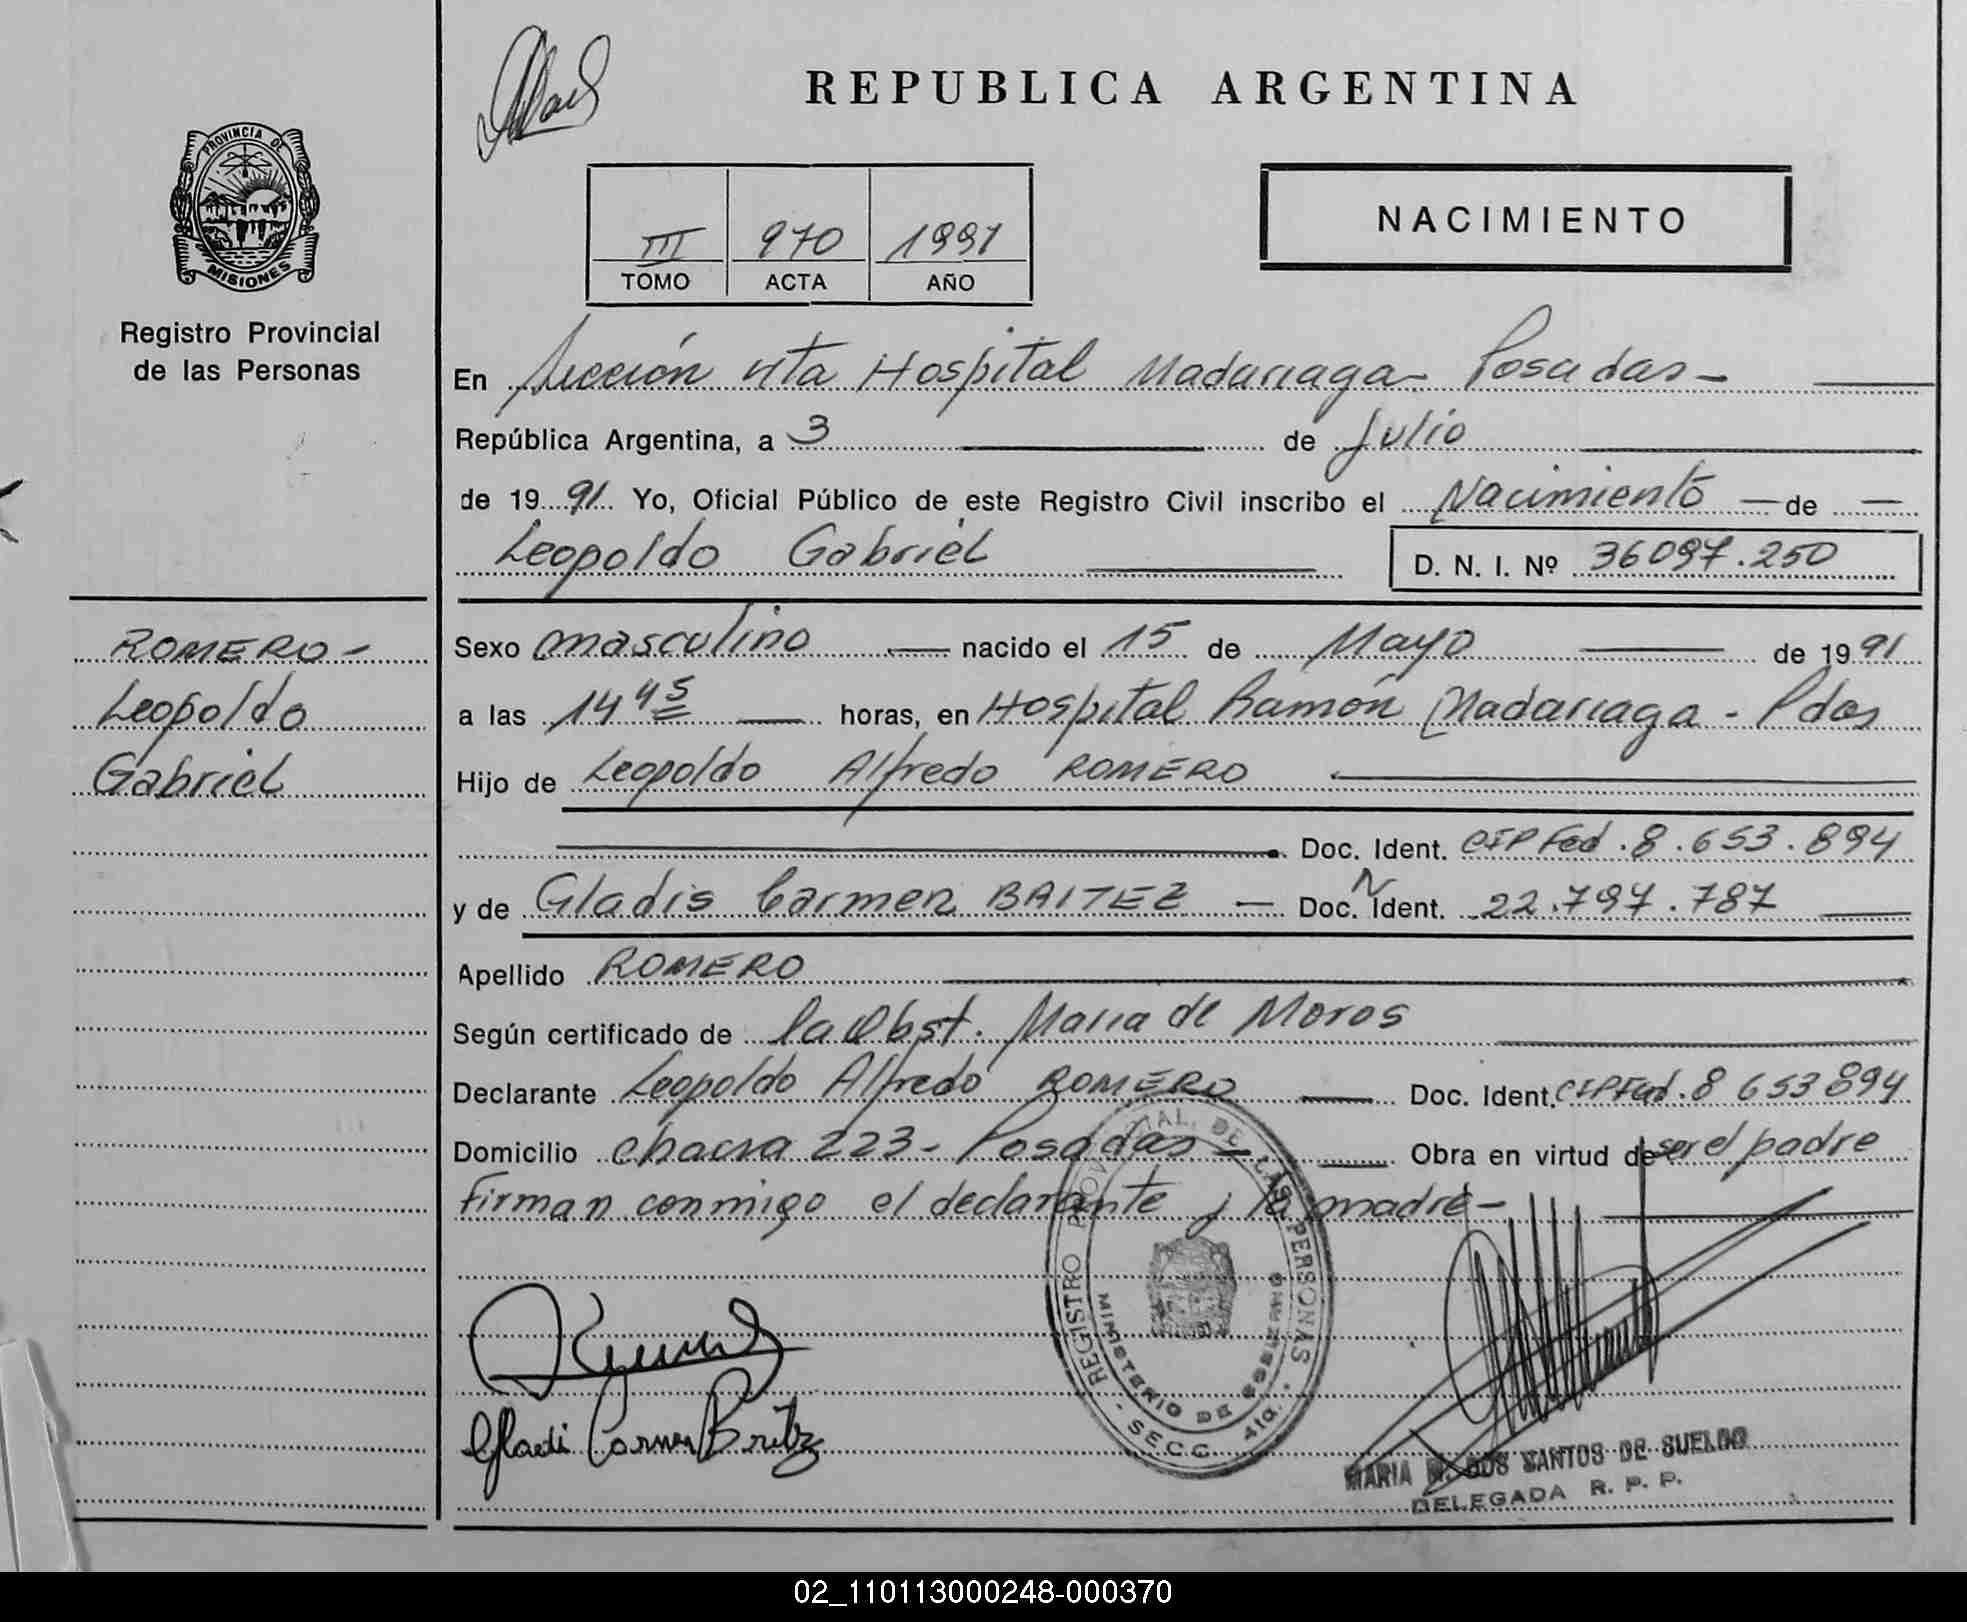 REPUBLICA ARGENTINA
PROVINCIA DE
MISIONES
Registro Provincial
de las Personas
III 970 1991
TOMO ACTA AÑO
NACIMIENTO
En Sección 4ta Hospital Madariaga - Posadas -
República Argentina, a 3 de Julio
de 19 91 Yo, Oficial Público de este Registro Civil inscribo el Nacimiento - de -
Leopoldo Gabriel D. N. I. Nº 36097.250
ROMERO -
Leopoldo
Gabriel
Sexo masculino nacido el 15 de Mayo de 19 91
a las 14 45 horas, en Hospital Ramón Madariaga - Pdas
Hijo de Leopoldo Alfredo ROMERO
Doc. Ident. CIPFed. 8.653.894
y de Gladis Carmen BAITEZ - Doc. N Ident. 22.797.787
Apellido ROMERO
Según certificado de la Obst. Maria de Moros
Declarante Leopoldo Alfredo ROMERO Doc. Ident. CIPFed. 8 653 894
Domicilio chacra 223 - Posadas - Obra en virtud de ser el padre
Firman conmigo el declarante y la madre -
REGISTRO PROVINCIAL DE LAS PERSONAS
MINISTERIO DE GOBIERNO
- SECC. 4ta. -
Gladi Carmen Britz
MARIA M. DOS SANTOS DE SUELDO
DELEGADA R. P. P.
02_110113000248-000370